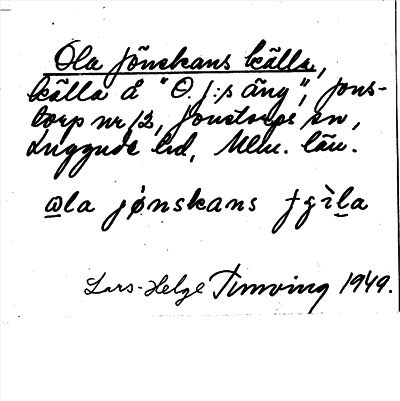 Ola Jönskans källa,
källa å "O. J:s äng", Jons-
torp nr 12, Jonstorps sn,
Luggude hd, Mlm. län.
ωla jønskans
Lars-Helge Tunving 1949.